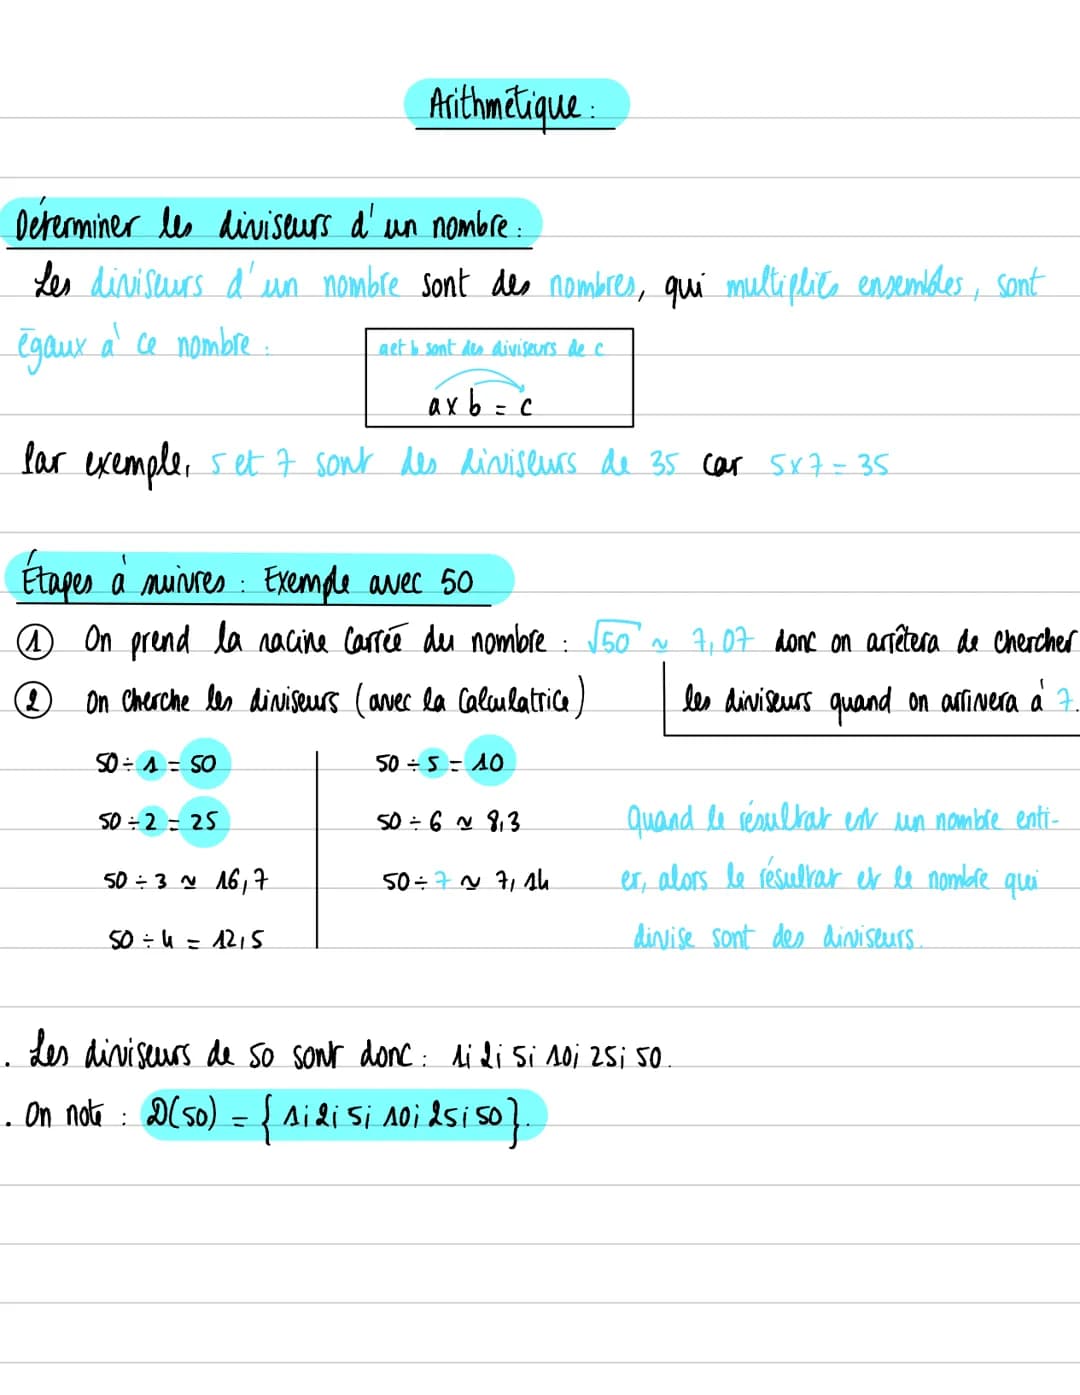 Arithmétique :
Déterminer les diviseurs d'un nombre :
Les diviseurs d'un nombre sont des nombres, qui multipliés ensembles, sont
égaux à ce nombre :
a et b sont des diviseurs de c
a x b = c
Par exemple, 5 et 7 sont des diviseurs de 35 car 5 x 7 = 35
Étapes à suivres : Exemple avec 50
① On prend la racine carrée du nombre : √50 ≃ 7,07 donc on arrêtera de chercher
les diviseurs quand on arrivera à 7.
② On cherche les diviseurs (avec la calculatrice)
50 ÷ 1 = 50
50 ÷ 2 = 25
50 ÷ 3 ≃ 16,7
50 ÷ 4 = 12,5
50 ÷ 5 = 10
50 ÷ 6 ≃ 8,3
50 ÷ 7 ≃ 7,14
Quand le résultat est un nombre enti-
er, alors le résultat et le nombre qui
divise sont des diviseurs.
. Les diviseurs de 50 sont donc : 1; 2; 5; 10; 25; 50.
. On note : D(50) = { 1; 2; 5; 10; 25; 50 }.